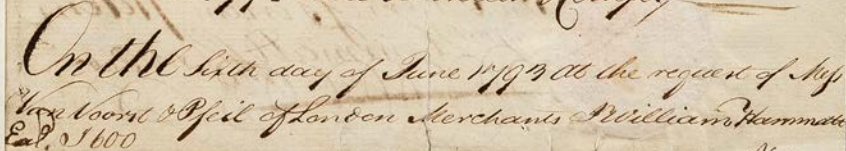 On the Sixth day of June 1793 at the request of Mess
Van Voorst & Pfeil of London Merchants I William Hammatt
Eal. 1600